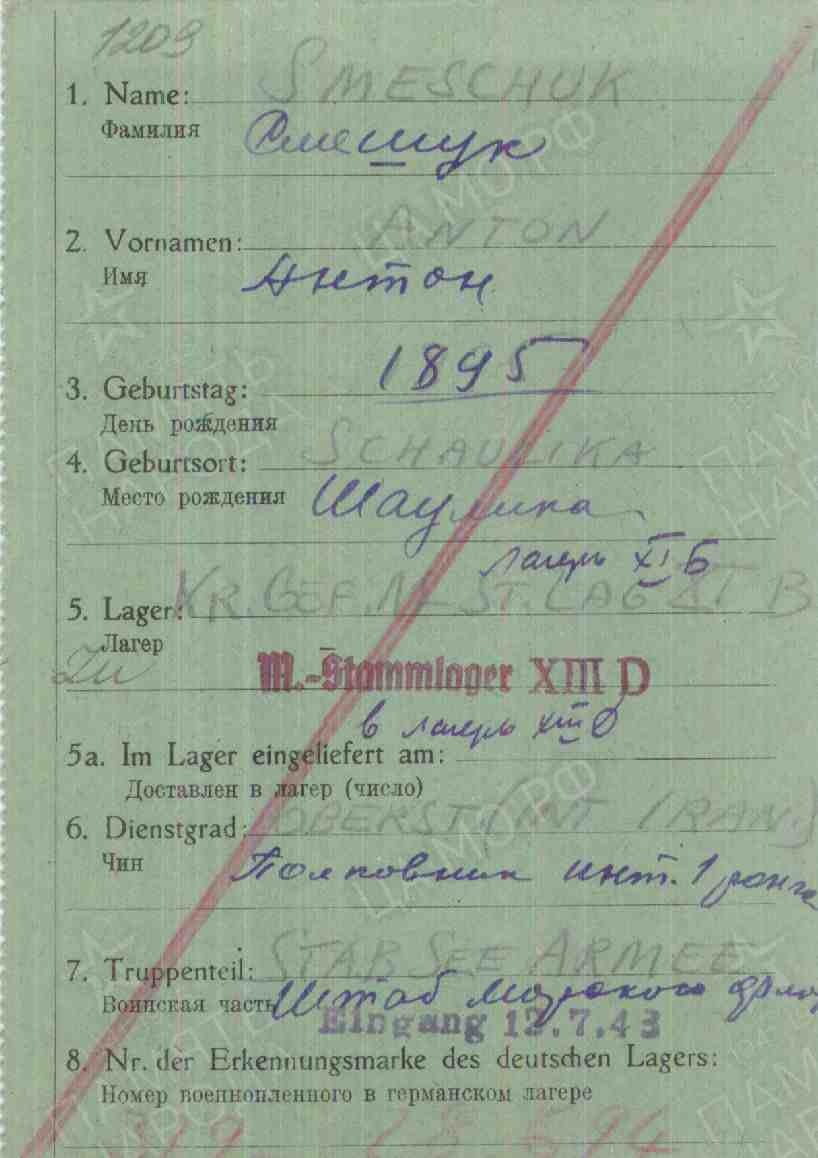 1209
1. Name: SMESCHUK
Фамилия Смешук
2. Vornamen: ANTON
Имя Антон
3. Geburtstag: 1895
День рождения
4. Geburtsort: SCHAULIKA
Место рождения Шаулика
лагерь XI Б
5. Lager: KR. GEF. M. ST. LAG XI B
Лагер
M.-Stammlager XIII D
в лагерь XIII D
5a. Im Lager eingeliefert am:
Доставлен в лагер (число)
6. Dienstgrad: OBERST INT (RAN.)
Чин Полковник инт. 1 ранга
7. Truppenteil: STAB SEE ARMEE
Воинская часть Штаб Морского
Eingang 13.7.43
8. Nr. der Erkennungsmarke des deutschen Lagers:
Номер военнопленного в германском лагере